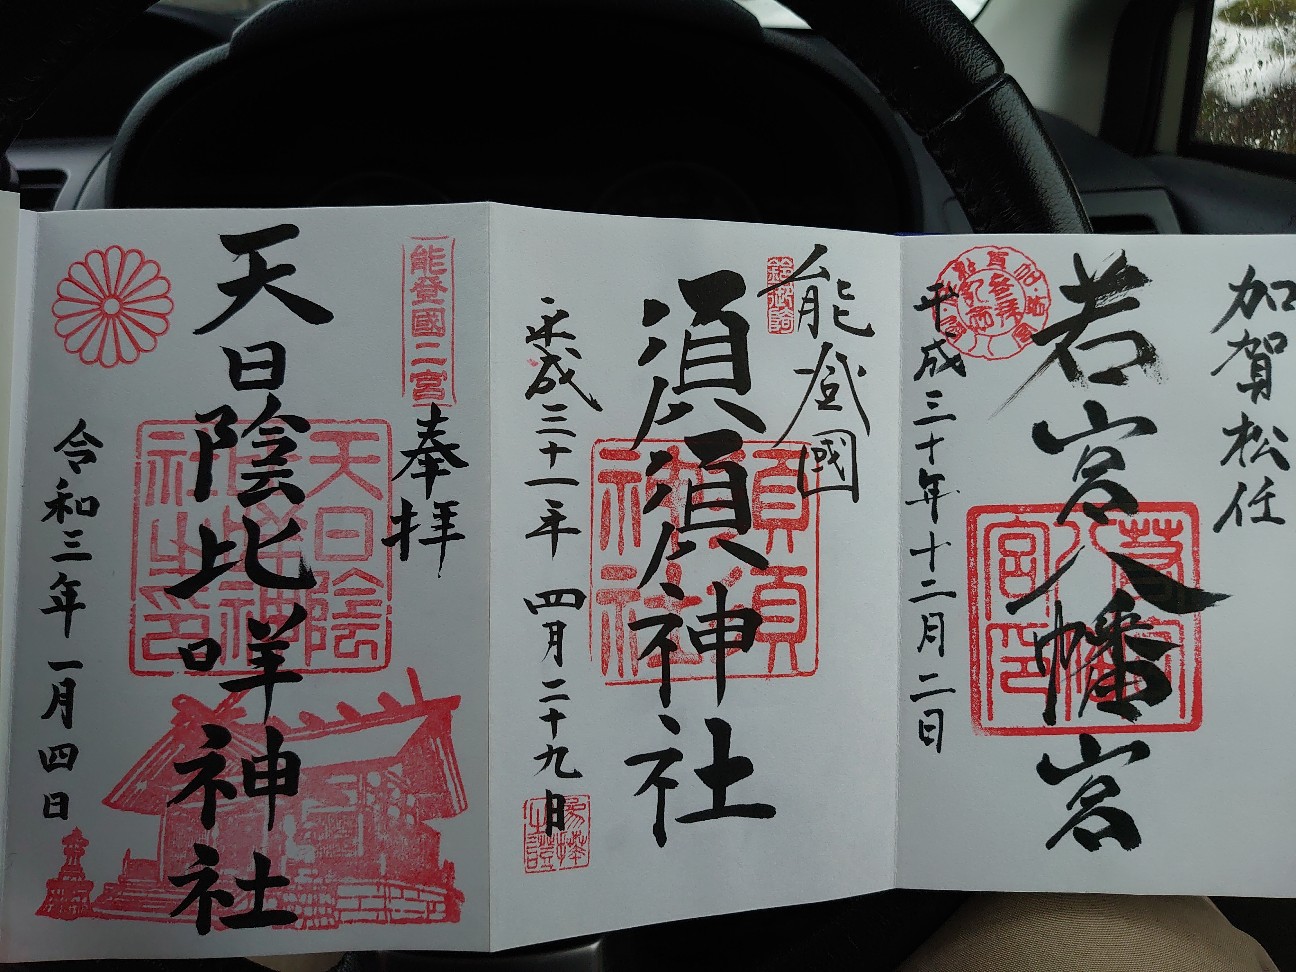 加賀松任
若宮八幡宮
平成三十年十二月二日
能登國
須須神社
須須神社
平成三十一年四月二十九日
能登國二宮
奉拝
天日陰比咩神社
天日陰比咩神社之印
令和三年一月四日